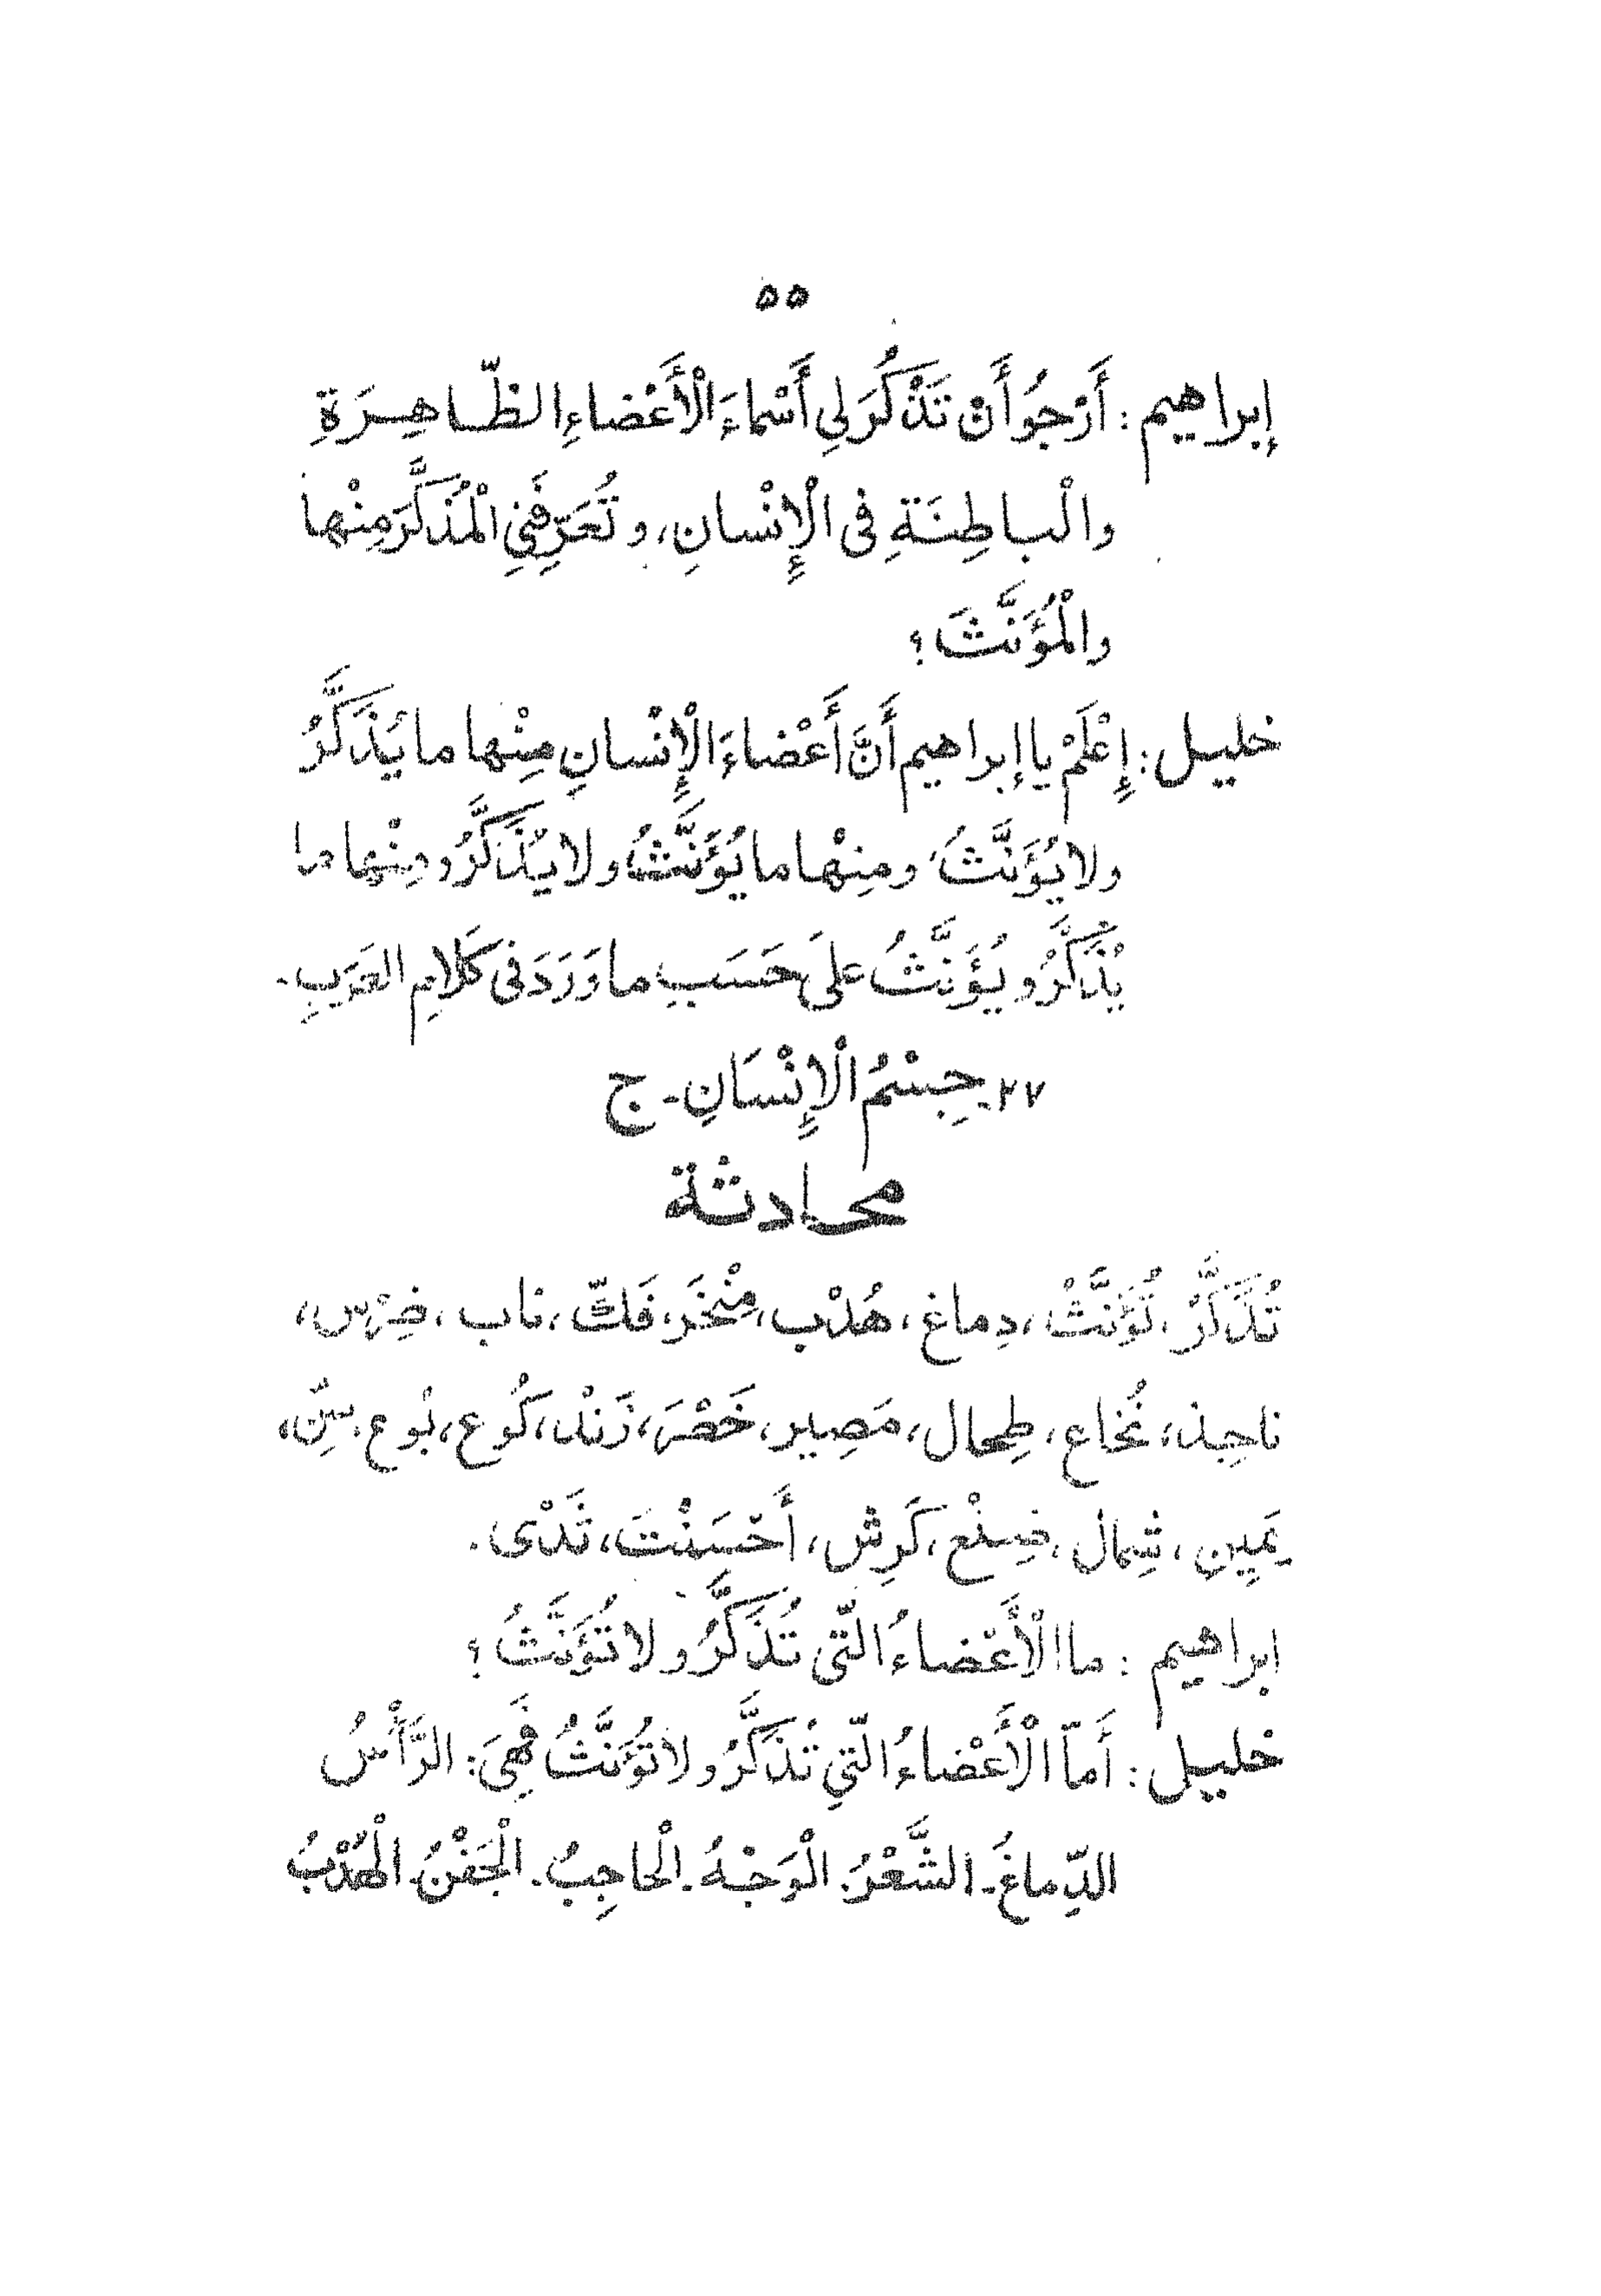 ٥٥
إبراهيم : أَرْجُو أَنْ تَذْكُرَ لِي أَسْماءَ الْأَعْضاءِ الظّاهِرَةِ
والْباطِنَةِ فى الْإِنْسانِ، و تُعَرِّفَنِي الْمُذَكَّرَ مِنْها
والْمُؤَنَّثَ ؟
خليل : إِعْلَمْ يا إبراهيم أَنَّ أَعْضاءَ الْإِنْسانِ مِنْها ما يُذَكَّرُ
ولا يُؤَنَّثُ، ومِنْها ما يُؤَنَّثُ ولا يُذَكَّرُ ومِنْها ما
يُذَكَّرُ و يُؤَنَّثُ علَى حَسَبِ ما وَرَدَ فى كَلامِ العَرَبِ.
٢٧. جِسْمُ الْإِنْسَانِ - ج
محادثة
تُذَكَّرُ، تُؤَنَّثُ، دِماغ، هُدْب، مِنْخَر، فَكّ، ناب، ضِرْس،
ناجِذ، نُخاع، طِحال، مَصِير، خَصْر، زَنْد، كُوع، بُوع، سِنّ،
يَمِين، شِمال، ضِلْع، كَرِش، أَحْسَنْتَ، ثَدْى.
ابراهيم : ما الْأَعْضاءُ الَّتى تُذَكَّرُ و لا تُؤَنَّثُ ؟
خليل : أَمّا الْأَعْضاءُ الَّتِي تُذَكَّرُ و لا تُؤَنَّثُ فَهِيَ : الرَّأْسُ
الدِّماغُ - الشَّعْرُ. الْوَجْهُ. الْحاجِبُ. الْجَفْنُ. الْهُدْبُ